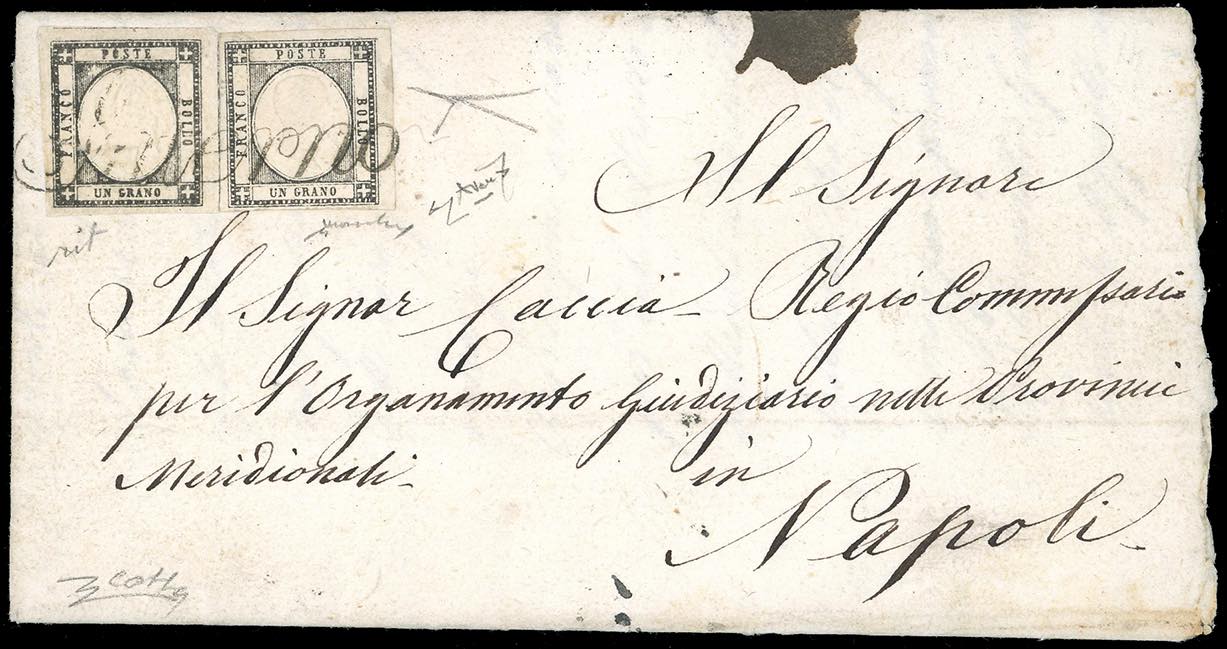 POSTE
FRANCO
BOLLO
UN GRANO
POSTE
FRANCO
BOLLO
UN GRANO
rit
Al Signore
Il Signor Caccia Regio Commissario
per l'Organamento Giudiziario nelle Provincie
Meridionali in
Napoli